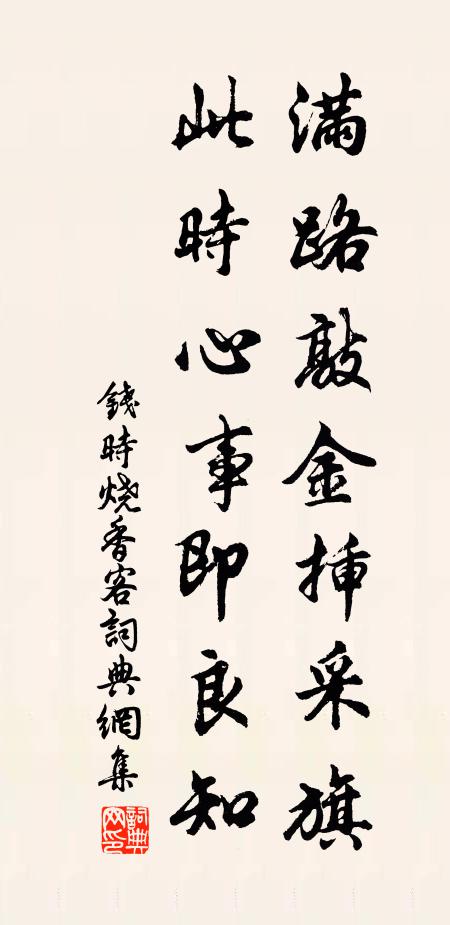 滿路敲金插采旗
此時心事即良知
錢時燒香客詞典網集
詞典网印